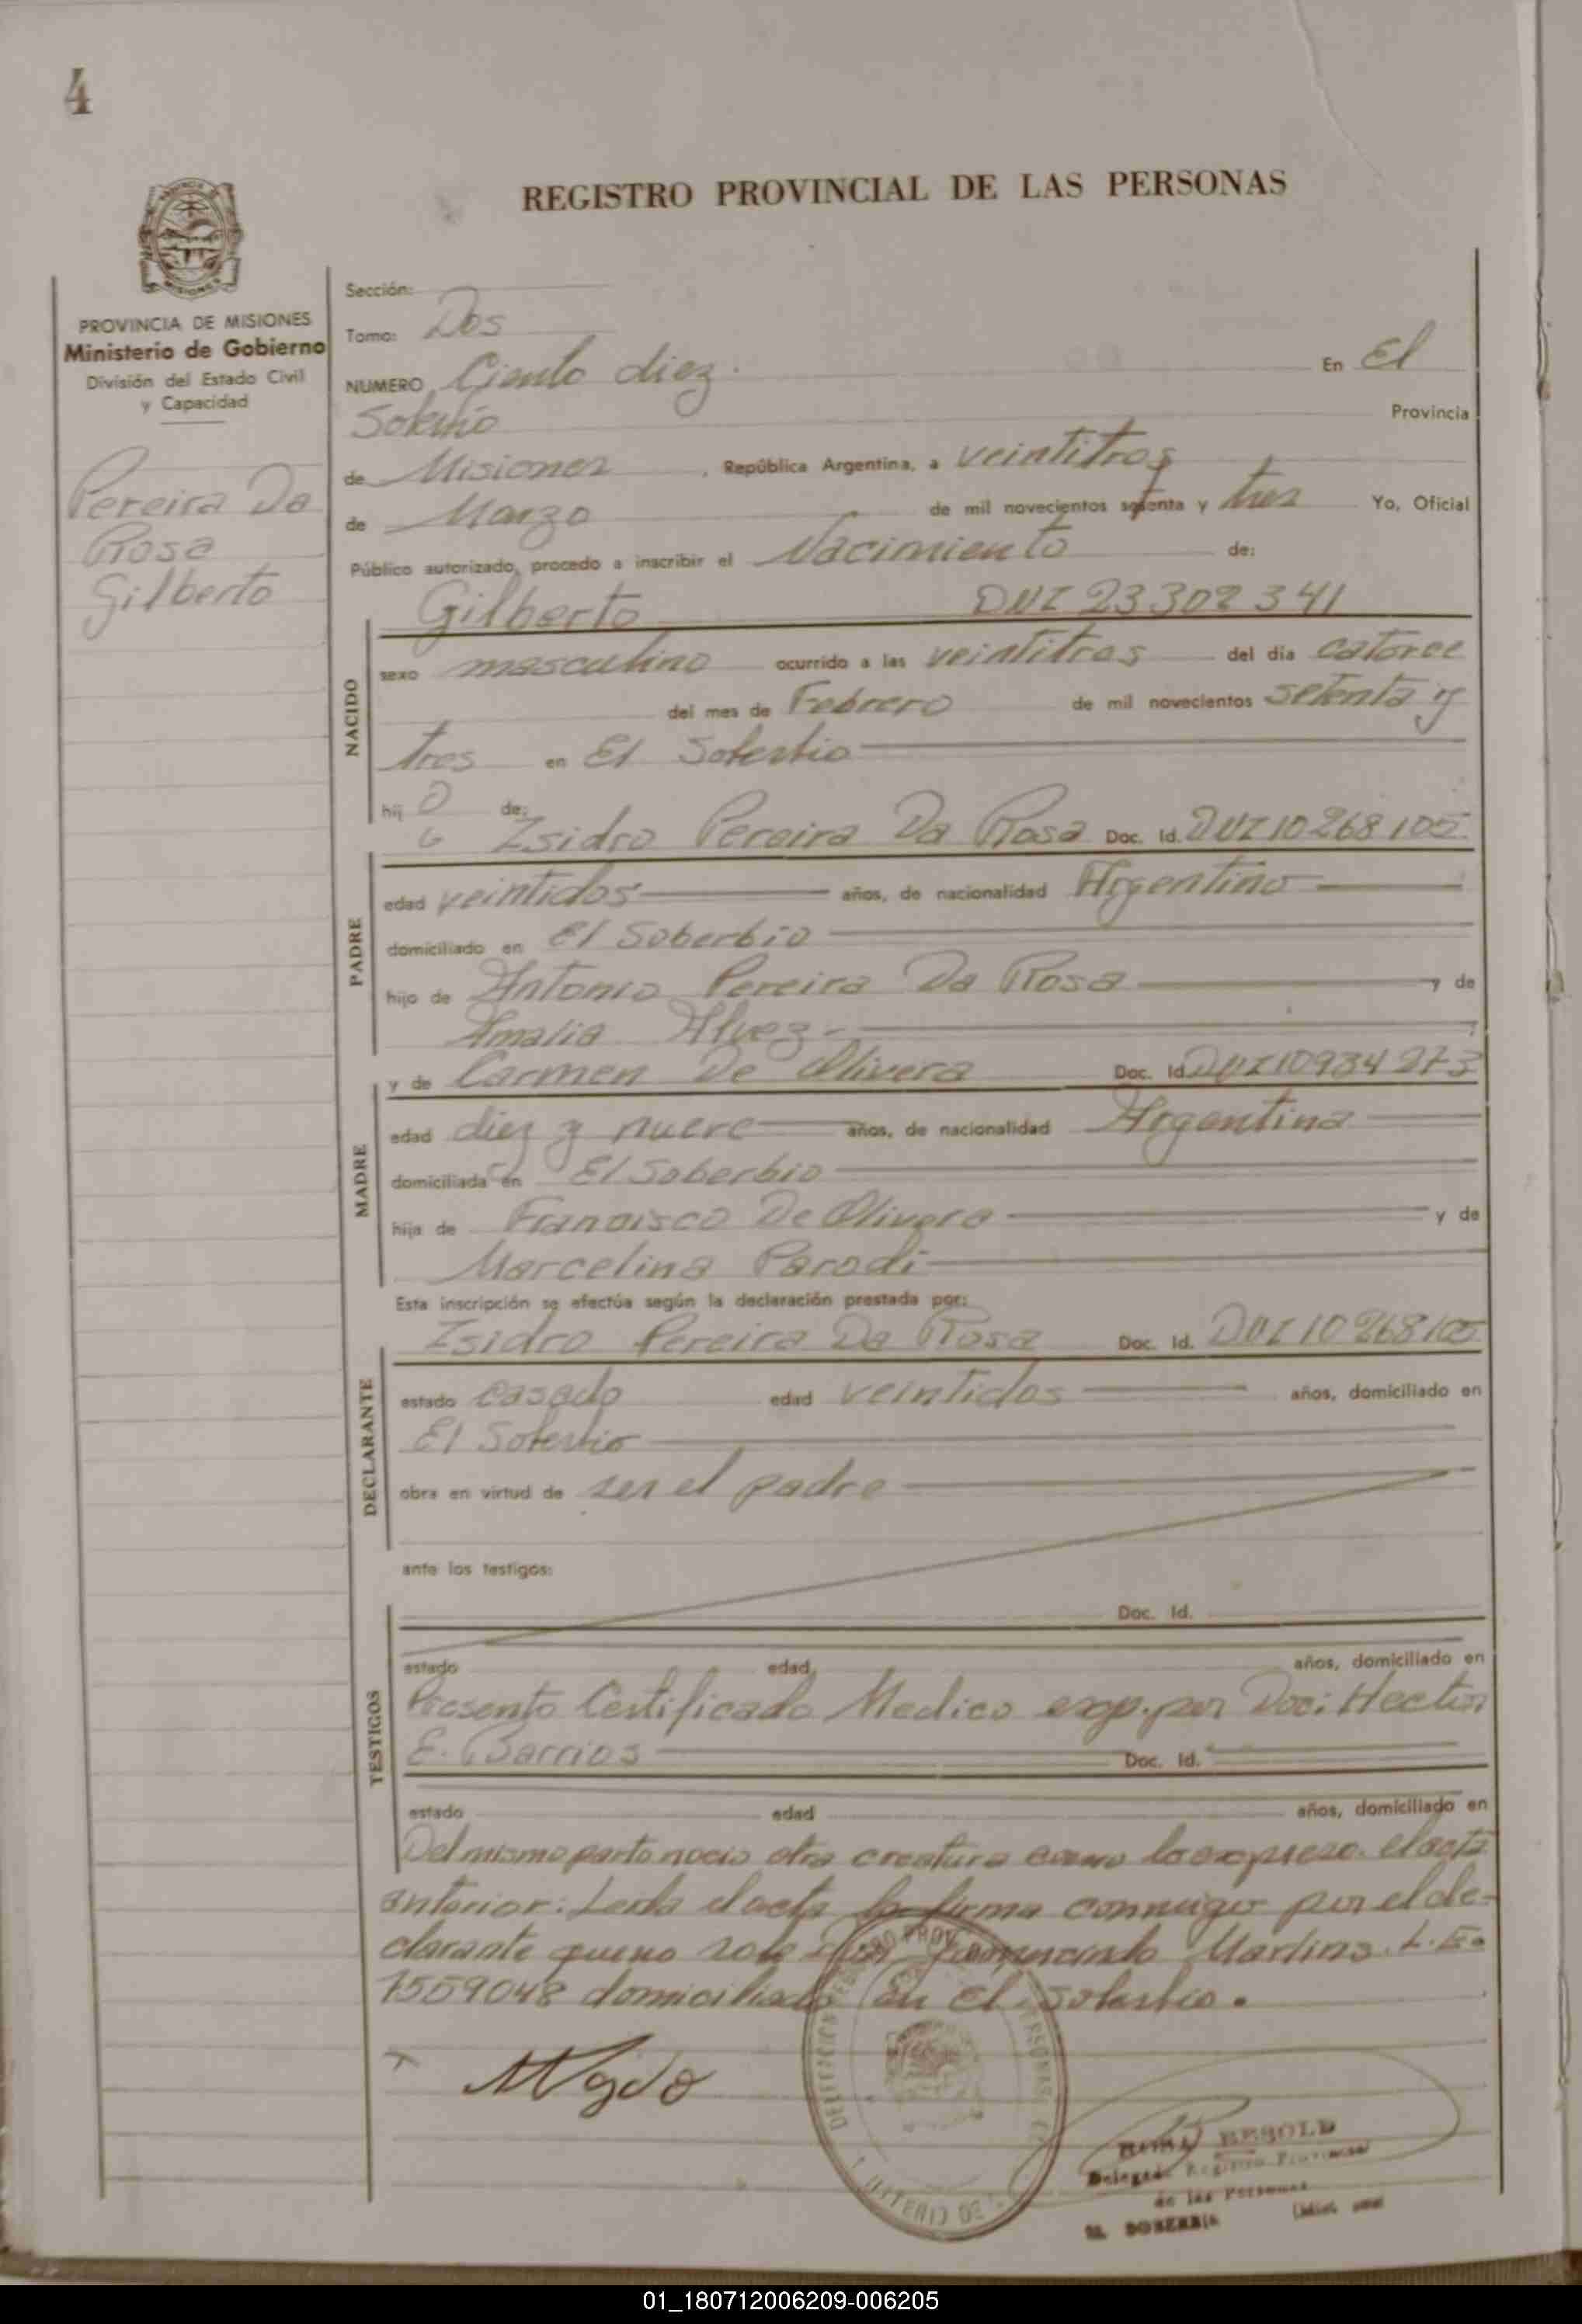 4
REGISTRO PROVINCIAL DE LAS PERSONAS
PROVINCIA DE MISIONES
Ministerio de Gobierno
División del Estado Civil
y Capacidad
Pereira Da
Rosa
Gilberto
Sección:
Tomo: Dos
NUMERO Ciento diez. En El
Soberbio Provincia
de Misiones, República Argentina, a veintitres
de Marzo de mil novecientos setenta y tres Yo, Oficial
Público autorizado, procedo a inscribir el Nacimiento de:
Gilberto DNI 23302341
NACIDO
sexo masculino ocurrido a las veintitres del día catorce
del mes de Febrero de mil novecientos setenta y
tres en El Soberbio
hij o de:
Isidro Pereira Da Rosa Doc. Id. DNI 10268105
PADRE
edad veintidos años, de nacionalidad Argentino
domiciliado en El Soberbio
hijo de Antonio Pereira Da Rosa y de
Amalia Alvez
y de Carmen De Olivera Doc. Id DNI 10934273
MADRE
edad diez y nueve años, de nacionalidad Argentina
domiciliada en El Soberbio
hija de Francisco De Olivera y de
Marcelina Parodi
Esta inscripción se efectúa según la declaración prestada por:
Isidro Pereira Da Rosa Doc. Id. DNI 10268105
DECLARANTE
estado casado edad veintidos años, domiciliado en
El Soberbio
obra en virtud de ser el padre
ante los testigos:
Doc. Id.
TESTIGOS
estado edad años, domiciliado en
Presento Certificado Medico exp. por Doc: Hector
E. Barrios Doc. Id.
estado edad años, domiciliado en
Del mismo parto nacio otra creatura como lo expreso el acta
anterior: Leida el acta la firma conmigo por el de-
clarante que no sabe Martins. L.E.
1559048 domiciliado en El Soberbio.
BESOLD
Delegado Registro Provincial
de las Personas
EL SOBERBIO
01_180712006209-006205